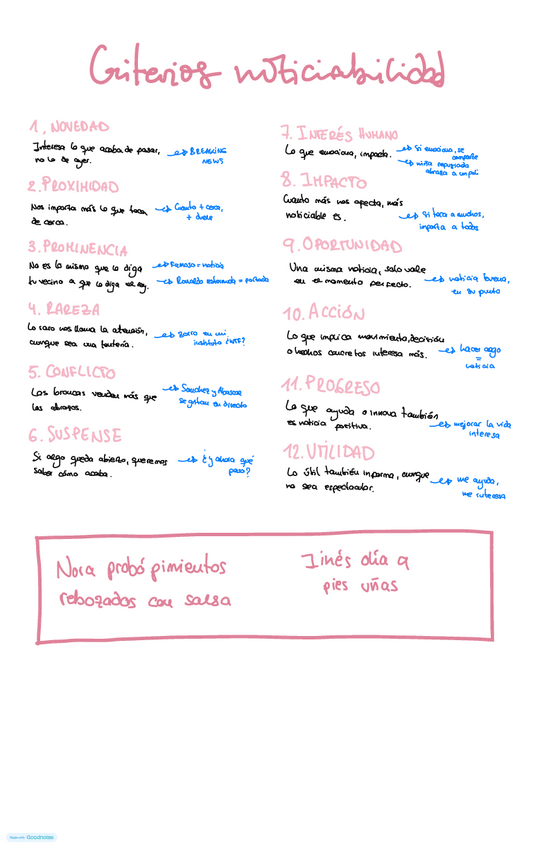 Criterios noticiabilidad
1. NOVEDAD
Interesa lo que acaba de pasar,
no lo de ayer.
→ BREAKING
NEWS
2. PROXIMIDAD
Nos importa más lo que toca
de cerca.
→ Cuanto + cerca,
+ duele
3. PROMINENCIA
No es lo mismo que lo diga
tu vecino a que lo diga el rey.
→ Famoso = noticia
→ Ronaldo estornuda = portada
4. RAREZA
Lo raro nos llama la atención,
aunque sea una tontería.
→ Burro en mi
instituto ¿WTF?
5. CONFLICTO
Las broncas venden más que
los abrazos.
→ Sánchez y Abascal
se gritan en directo
6. SUSPENSE
Si algo queda abierto, queremos
saber cómo acaba.
→ ¿y ahora qué
pasa?
7. INTERÉS HUMANO
Lo que emociona, impacta.
→ Si emociona, se
comparte
→ niña refugiada
abraza a un poli
8. IMPACTO
Cuanto más nos afecta, más
noticiable es.
→ Si toca a muchos,
importa a todos
9. OPORTUNIDAD
Una misma noticia, solo vale
en el momento perfecto.
→ noticia buena,
en su punto
10. ACCIÓN
Lo que implica movimiento, decisión
o hechos concretos interesa más.
→ hacer algo
=
noticia
11. PROGRESO
Lo que ayuda o innova también
es noticia positiva.
→ mejorar la vida
interesa
12. UTILIDAD
Lo útil también informa, aunque
no sea espectacular.
→ me ayuda,
me interesa
Nora probó pimientos
rebozados con salsa
Iinés día a
pies uñas
Goodnotes